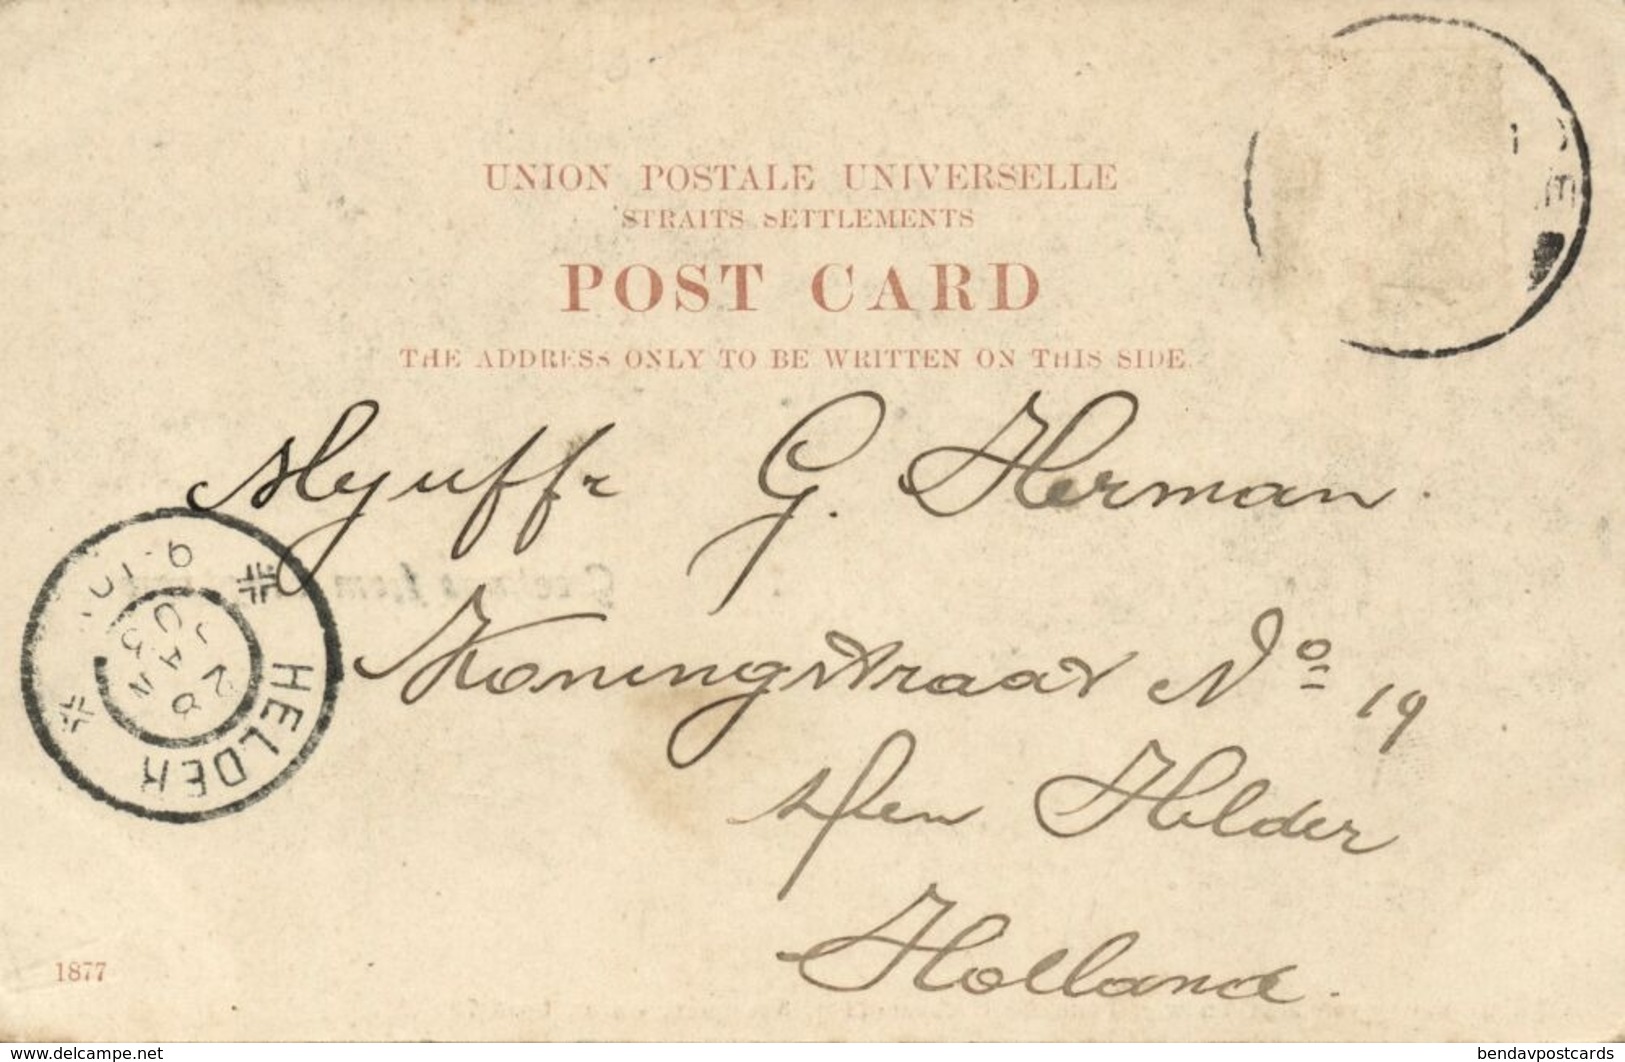 UNION POSTALE UNIVERSELLE
STRAITS SETTLEMENTS
POST CARD
THE ADDRESS ONLY TO BE WRITTEN ON THIS SIDE.
Mejuffr G. Herman.
Koningstraat No 19
den Helder
Holland.
HELDER
28
JAN
03
1877
www.delcampe.net
bendavpostcards